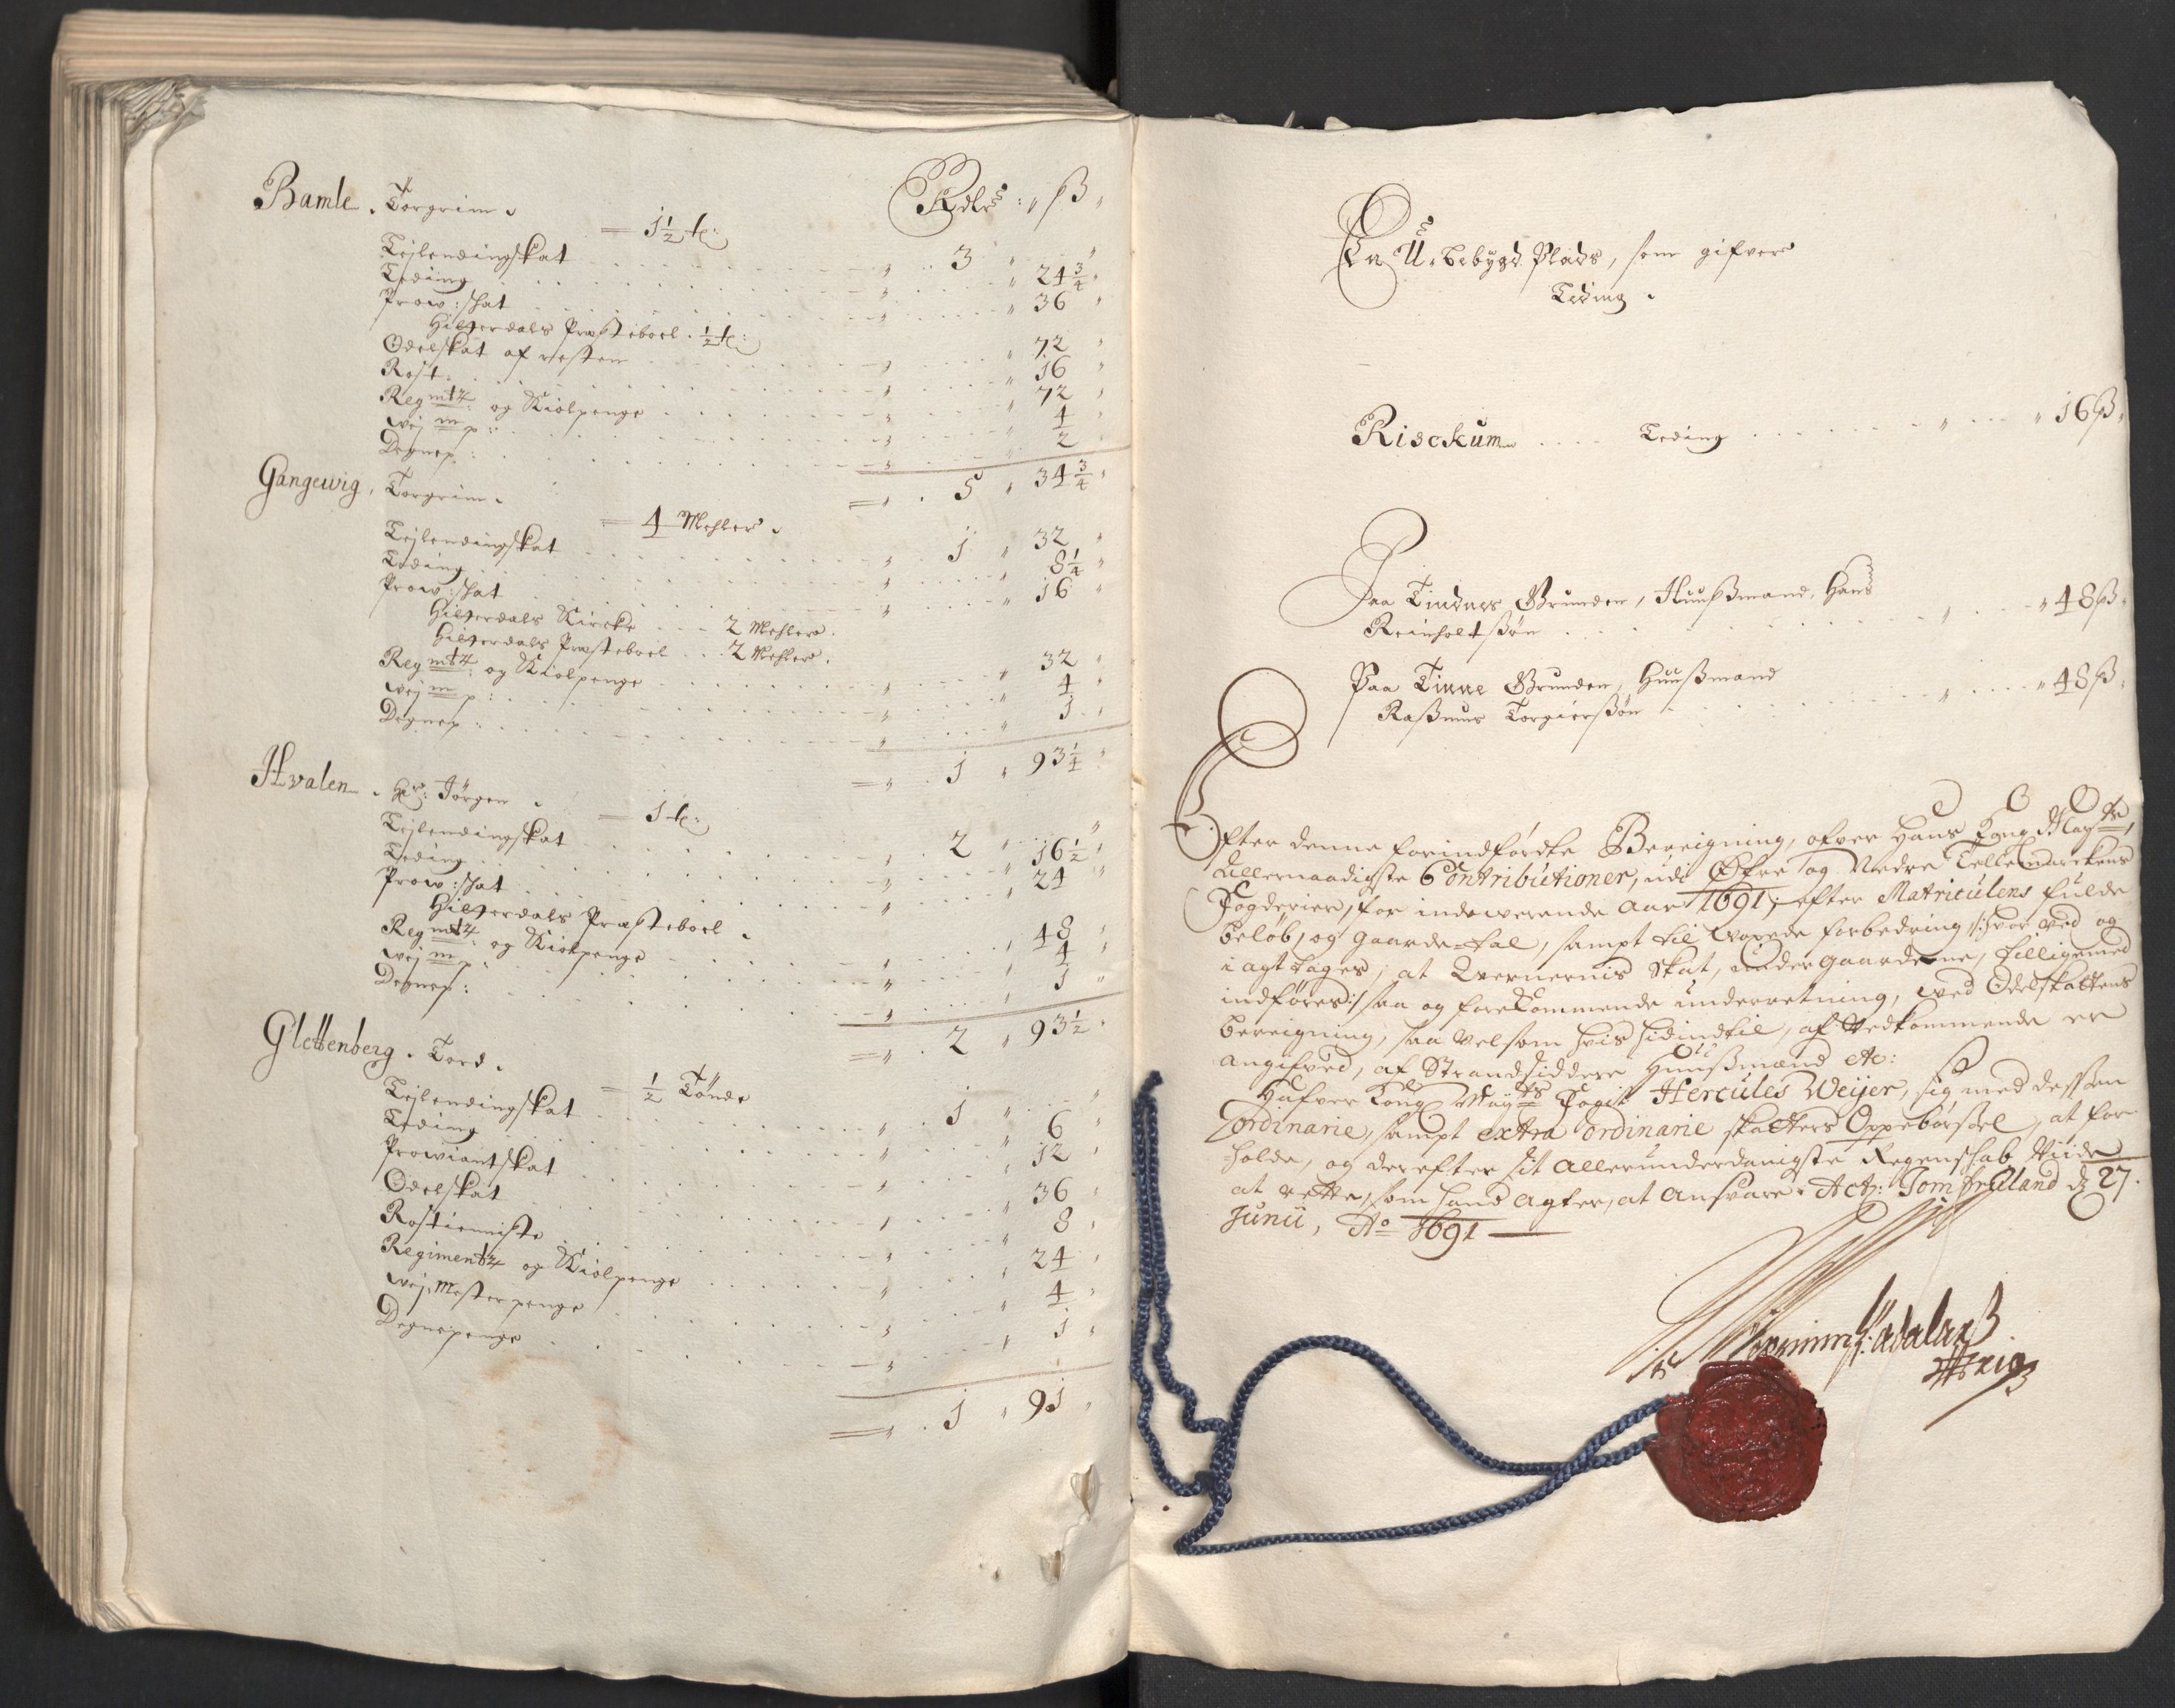 Rdlr: ß
Bamle. Torgrim.
= 1 1/2 t:
Lejlendingskat 3
Leding 24 3/4
Prow:skat 36
Hitterdals Præsteboel. 1/2 t:
Odelskat af resten 72
Rost: 16
Reg mtz: og Kiolpenge 72
Wej m p: 4
Degnep: 2
= 5 34 3/4
Gangewig, Torgrim.
= 4 Mehler.
Lejlendingskat 1 32
Leding 8 1/4
Prow:skat 16
Hitterdals Kircke 2 Mehler.
Hitterdals Præsteboel 2 Mehler.
Reg mtz: og Kiolpenge 32
Wej m p: 4
Degnep: 1
= 1 93 1/4
Hvalen. Hr: Jörgen.
= 1 t:
Lejlendingskat 2
Leding 16 1/2
Prow:skat 24
Hitterdals Præsteboel.
Reg mtz: og Kiolpenge 48
Wej m p: 4
Degnep: 1
= 2 93 1/2
Glottenberg. Tord.
= 1/2 Tönde
Lejlendingskat 1
Leding 6
Prowiantskat 12
Odelskat 36
Rostienniste 8
Regimentz og Kiolpenge 24
Wej Mester penge 4
Degnepenge 1
= 1 91
En U-bebygd Plads, som gifver
Leding.
Risckum Leding 16 ß
Paa Tindnes Grunden, Huußmand, Hans
Reinholtßön 48 ß
Paa Tinne Grunden, Huußmand
Raßmus Torgierßön 48 ß
Efter denne forindfördte Bereigning, ofver Hans Kong May ts
Allernaadigste Contributioner, udi Öfre og Nedre Tellemarckens
Fogderier, for indeværende Aar 1691, efter Matriculens fulde
beløb, og gaarde-tal, sampt til voxede forbedring /: hvor ved og
i agt tages, at Qvernernis Skat, under gaardene, tilligemed
indföres :/ saa og forekommende underretning, ved Odelskattens
bereigning, saa velsom hvis hidindtil, af Vedkommende er
angifved, af Strandsiddere Huußmænd etc:
Hafver Kong May ts Fogit Hercules Weijer, sig med dessen
ordinarie, sampt extra ordinarie skatters Oppebörsel, at for
holde, og derefter sit allerunderdanigste Regenskab Viide
at rette, som hand agter, at ansvare. Act: Jomfruland d 27.
Junii, Ao 1691